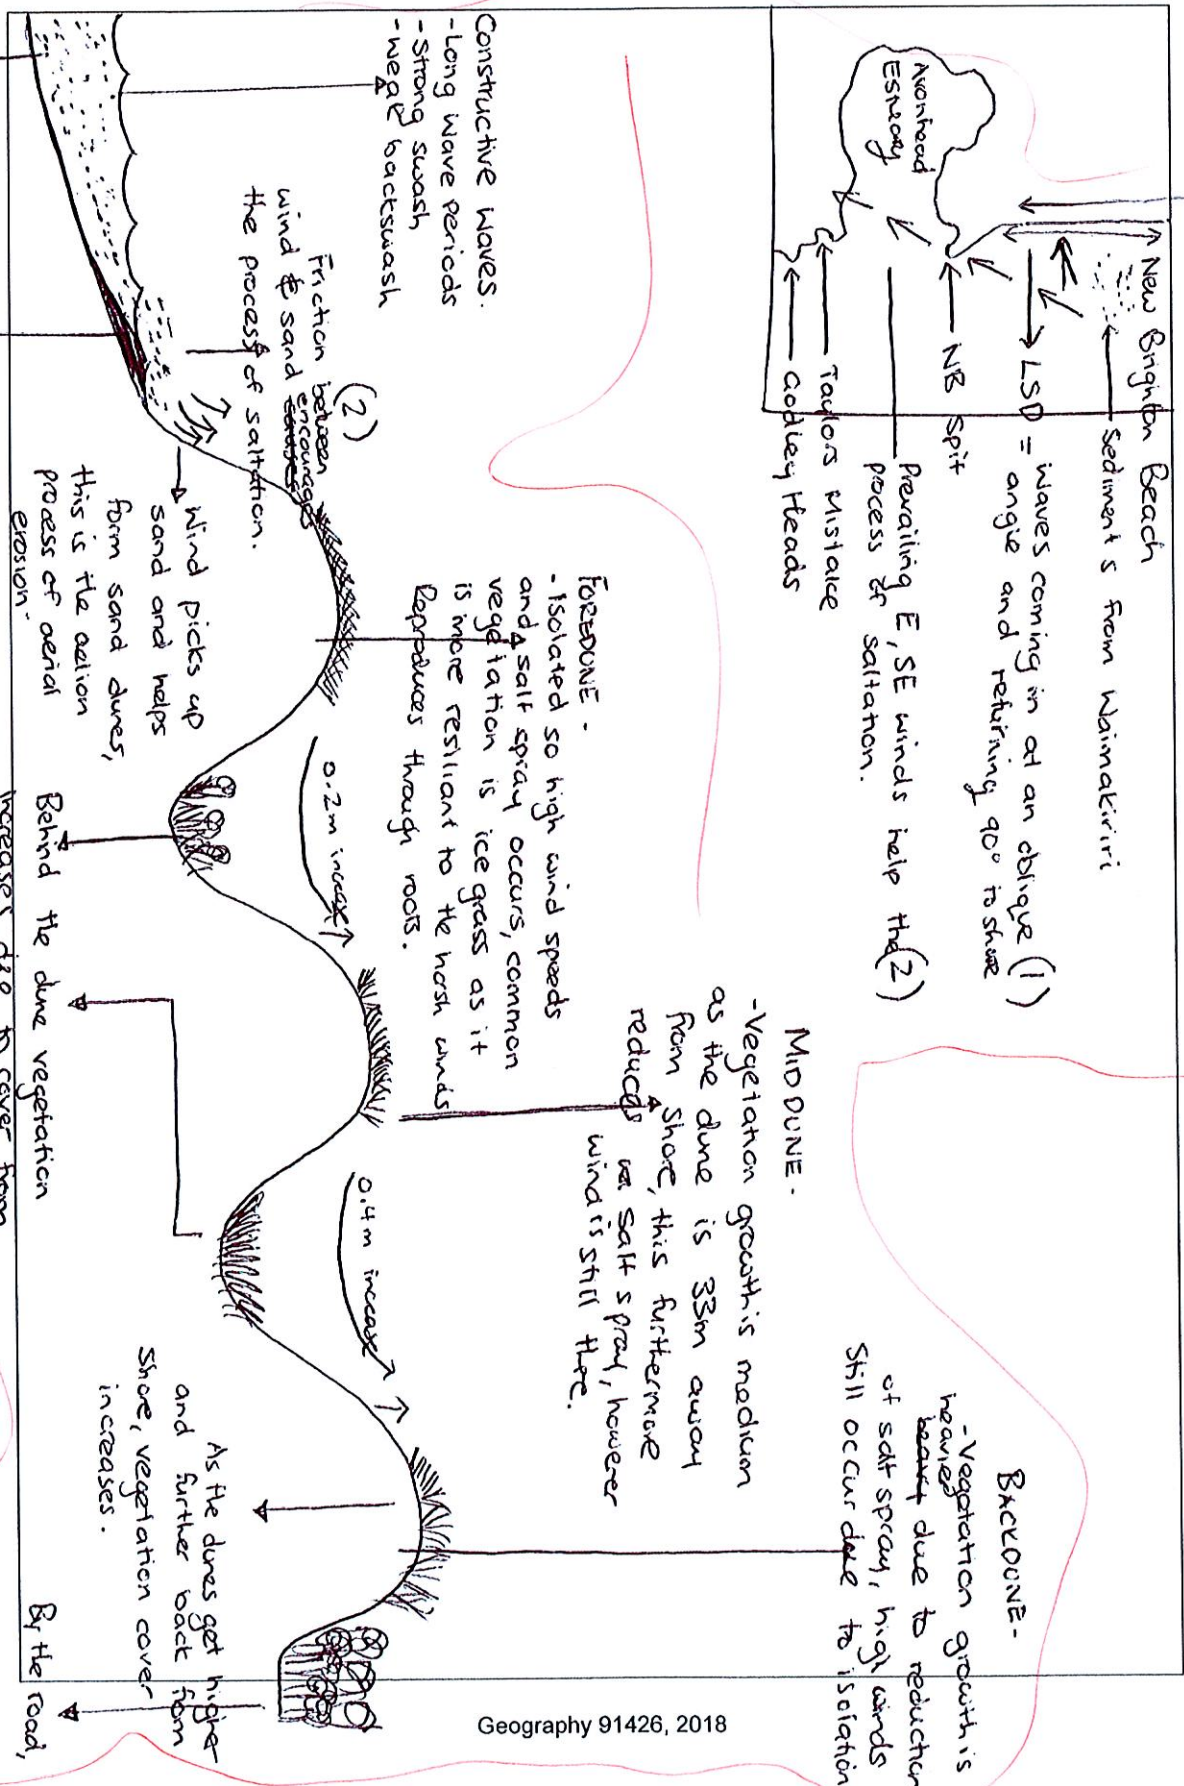 New Brighton Beach
Sediments from Waimakiriri
LSD = waves coming in at an oblique (1)
angle and returning 90° to shore
NB Spit
Prevailing E, SE winds help the (2)
process of saltation.
Taylors Mistake
Godley Heads
Avonhead
Constructive waves.
- Long wave periods
- Strong swash
- weak backswash
(2)
Friction between
wind & sand encourages
the process of saltation.
Wind picks up
sand and helps
form sand dunes,
this is the action
process of aerial
erosion.
FOREDUNE -
- Isolated so high wind speeds
and salt spray occurs, common
vegetation is ice grass as it
is more resiliant to the harsh winds
Reproduces through roots.
0.2m increase
Behind the dune vegetation
increases due to cover from
MID DUNE -
- Vegetation growth is medium
as the dune is 33m away
from shore, this furthermore
reduces salt spray, however
wind is still there.
0.4m increase
BACKDUNE -
- Vegetation growth is
heavier due to reduction
of salt spray, high winds
Still occur due to isolation
As the dunes get higher
and further back from
shore, vegetation cover
increases.
By the road,
Geography 91426, 2018